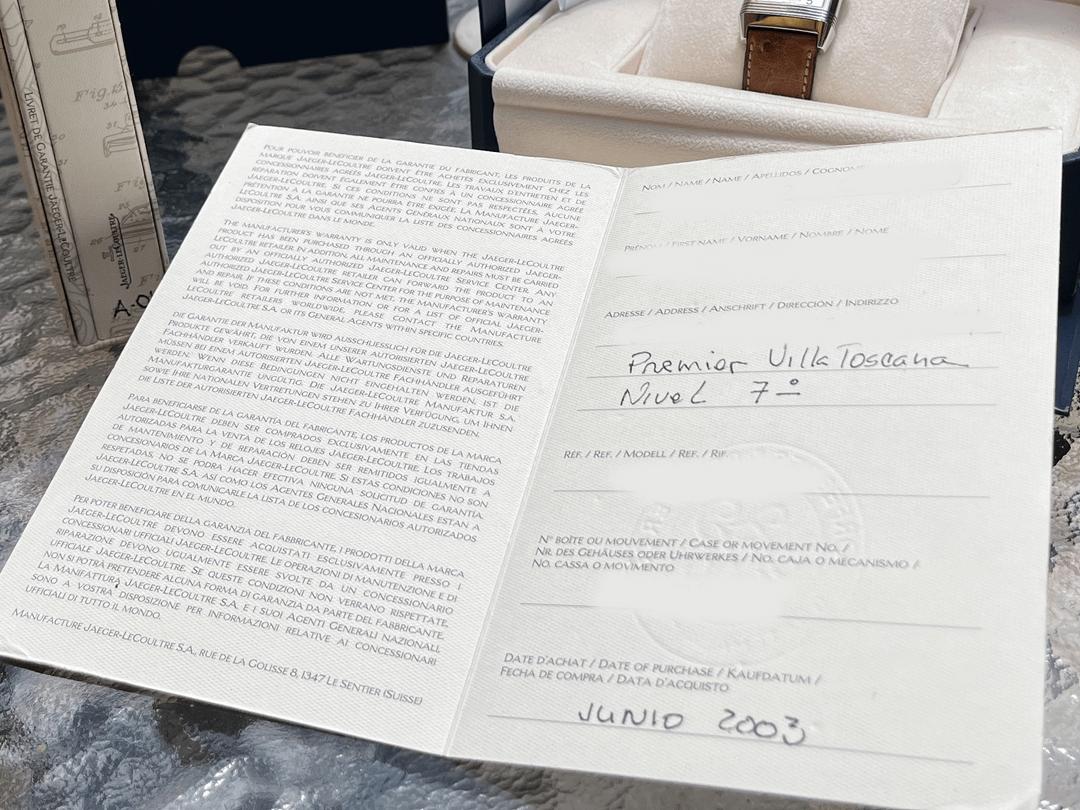 Fig.15.
LIVRET DE GARANTIE JAEGER-LECOULTRE
JAEGER-LECOULTRE
POUR POUVOIR BÉNÉFICIER DE LA GARANTIE DU FABRICANT, LES PRODUITS DE LA
MARQUE JAEGER-LECOULTRE DOIVENT ÊTRE ACHETÉS EXCLUSIVEMENT CHEZ LES
CONCESSIONNAIRES AGRÉÉS JAEGER-LECOULTRE. LES TRAVAUX D'ENTRETIEN ET DE
RÉPARATION DOIVENT ÉGALEMENT ÊTRE CONFIÉS À UN CONCESSIONNAIRE AGRÉÉ
JAEGER-LECOULTRE. SI CES CONDITIONS NE SONT PAS RESPECTÉES, AUCUNE
PRÉTENTION À LA GARANTIE NE POURRA ÊTRE EXIGÉE. LA MANUFACTURE JAEGER-
LECOULTRE S.A. AINSI QUE SES AGENTS GÉNÉRAUX NATIONAUX SONT À VOTRE
DISPOSITION POUR VOUS COMMUNIQUER LA LISTE DES CONCESSIONNAIRES AGRÉÉS
JAEGER-LECOULTRE DANS LE MONDE.
THE MANUFACTURER'S WARRANTY IS ONLY VALID WHEN THE JAEGER-LECOULTRE
PRODUCT HAS BEEN PURCHASED THROUGH AN OFFICIALLY AUTHORIZED JAEGER-
LECOULTRE RETAILER. IN ADDITION, ALL MAINTENANCE AND REPAIRS MUST BE CARRIED
OUT BY AN OFFICIALLY AUTHORIZED JAEGER-LECOULTRE SERVICE CENTER. ANY
AUTHORIZED JAEGER-LECOULTRE RETAILER CAN FORWARD THE PRODUCT TO AN
AUTHORIZED JAEGER-LECOULTRE SERVICE CENTER FOR THE PURPOSE OF MAINTENANCE
AND REPAIR. IF THESE CONDITIONS ARE NOT MET, THE MANUFACTURER'S WARRANTY
WILL BE VOID. FOR FURTHER INFORMATION OR FOR A LIST OF OFFICIAL JAEGER-
LECOULTRE RETAILERS WORLDWIDE, PLEASE CONTACT THE MANUFACTURE
JAEGER-LECOULTRE S.A. OR ITS GENERAL AGENTS WITHIN SPECIFIC COUNTRIES.
DIE GARANTIE DER MANUFAKTUR WIRD AUSSCHLIESSLICH FÜR DIE JAEGER-LECOULTRE
PRODUKTE GEWÄHRT, DIE VON EINEM UNSERER AUTORISIERTEN JAEGER-LECOULTRE
FACHHÄNDLER VERKAUFT WURDEN. ALLE WARTUNGSDIENSTE UND REPARATUREN
MÜSSEN BEI EINEM AUTORISIERTEN JAEGER-LECOULTRE FACHHÄNDLER AUSGEFÜHRT
WERDEN. WENN DIESE BEDINGUNGEN NICHT EINGEHALTEN WERDEN, IST DIE
MANUFAKTURGARANTIE UNGÜLTIG. DIE JAEGER-LECOULTRE MANUFAKTUR S.A.
SOWIE IHRE NATIONALEN VERTRETUNGEN STEHEN ZU IHRER VERFÜGUNG, UM IHNEN
DIE LISTE DER AUTORISIERTEN JAEGER-LECOULTRE FACHHÄNDLER ZUZUSENDEN.
PARA BENEFICIARSE DE LA GARANTÍA DEL FABRICANTE, LOS PRODUCTOS DE LA MARCA
JAEGER-LECOULTRE DEBEN SER COMPRADOS EXCLUSIVAMENTE EN LAS TIENDAS
AUTORIZADAS PARA LA VENTA DE LOS RELOJES JAEGER-LECOULTRE. LOS TRABAJOS
DE MANTENIMIENTO Y DE REPARACIÓN DEBEN SER REMITIDOS IGUALMENTE A
CONCESIONARIOS DE LA MARCA JAEGER-LECOULTRE. SI ESTAS CONDICIONES NO SON
RESPETADAS, NO SE PODRÁ HACER EFECTIVA NINGUNA SOLICITUD DE GARANTÍA.
JAEGER-LECOULTRE S.A. ASÍ COMO LOS AGENTES GENERALES NACIONALES ESTÁN A
SU DISPOSICIÓN PARA COMUNICARLE LA LISTA DE LOS CONCESIONARIOS AUTORIZADOS
JAEGER-LECOULTRE EN EL MUNDO.
PER POTER BENEFICIARE DELLA GARANZIA DEL FABBRICANTE, I PRODOTTI DELLA MARCA
JAEGER-LECOULTRE DEVONO ESSERE ACQUISTATI ESCLUSIVAMENTE PRESSO I
CONCESSIONARI UFFICIALI JAEGER-LECOULTRE. LE OPERAZIONI DI MANUTENZIONE E DI
RIPARAZIONE DEVONO UGUALMENTE ESSERE SVOLTE DA UN CONCESSIONARIO
UFFICIALE JAEGER-LECOULTRE. SE QUESTE CONDIZIONI NON VERRANO RISPETTATE,
NON SI POTRÀ PRETENDERE ALCUNA FORMA DI GARANZIA DA PARTE DEL FABBRICANTE.
LA MANIFATTURA JAEGER-LECOULTRE S.A. E I SUOI AGENTI GENERALI NAZIONALI,
SONO A VOSTRA DISPOSIZIONE PER INFORMAZIONI RELATIVE AI CONCESSIONARI
UFFICIALI DI TUTTO IL MONDO.
MANUFACTURE JAEGER-LECOULTRE S.A., RUE DE LA GOLISSE 8, 1347 LE SENTIER (SUISSE)
NOM / NAME / NAME / APELLIDOS / COGNOME
PRÉNOM / FIRST NAME / VORNAME / NOMBRE / NOME
ADRESSE / ADDRESS / ANSCHRIFT / DIRECCIÓN / INDIRIZZO
Premier Villa Toscana
Nivel 7º
RÉF. / REF. / MODELL / REF. / RIF.
N° BOÎTE OU MOUVEMENT / CASE OR MOVEMENT NO. /
NR. DES GEHÄUSES ODER UHRWERKES / NO. CAJA O MECANISMO /
NO. CASSA O MOVIMENTO
DATE D'ACHAT / DATE OF PURCHASE / KAUFDATUM /
FECHA DE COMPRA / DATA D'ACQUISTO
JUNIO 2003